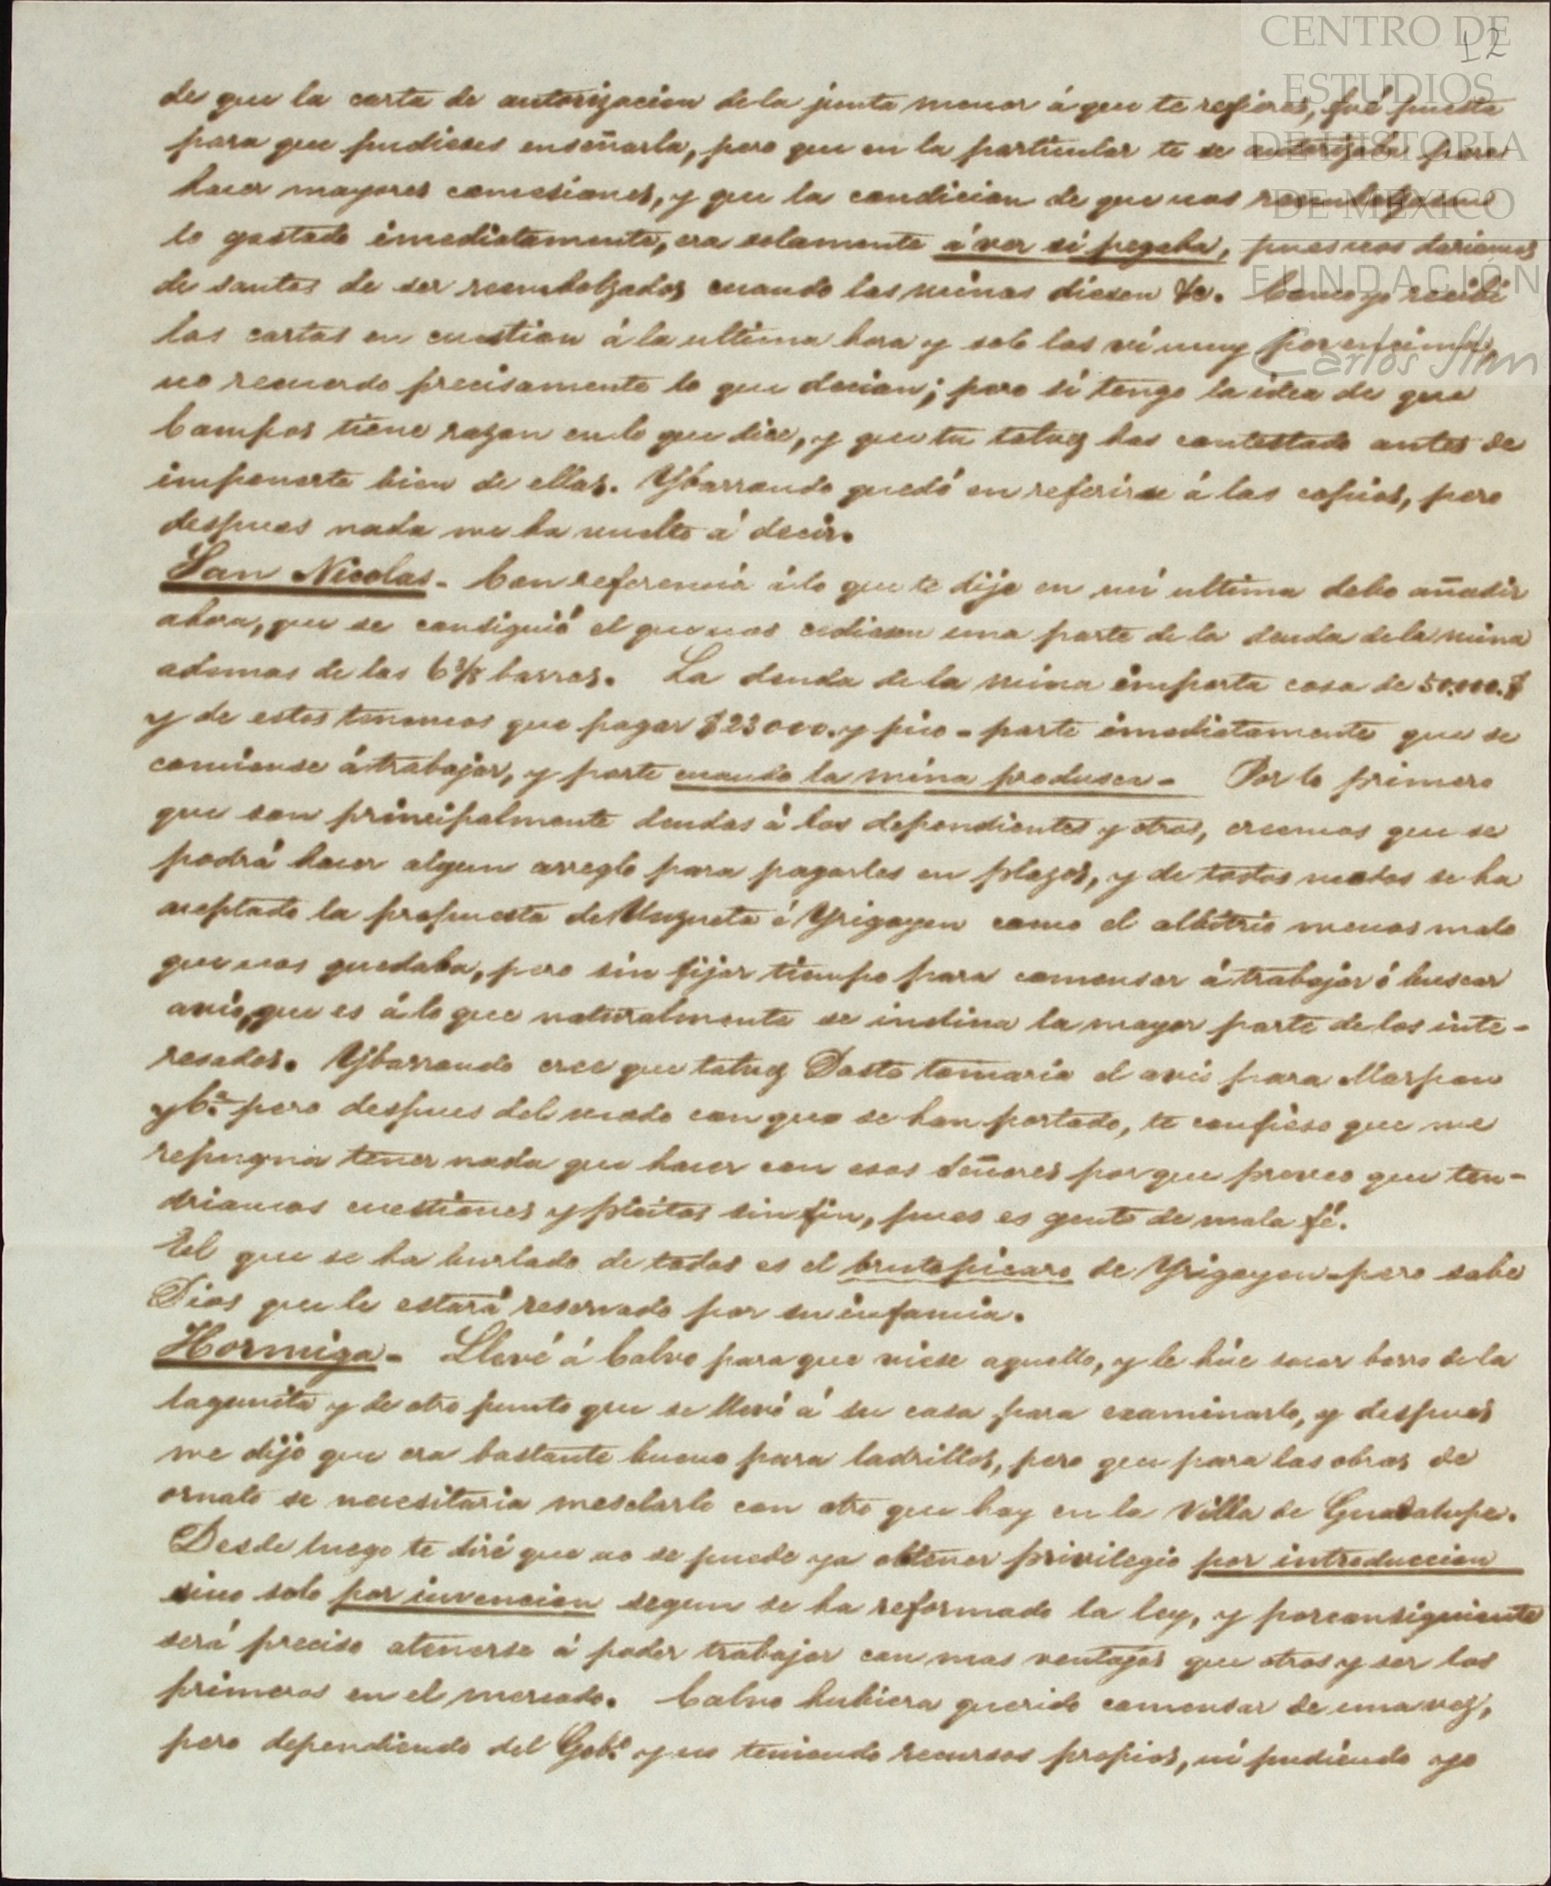 CENTRO DE
ESTUDIOS
DE HISTORIA
DE MEXICO
FUNDACIÓN
Carlos Slim
12
de que la carta de autorizacion de la junta menor á que te refieres, fué puesta
para que pudieses enseñarla, pero que en la particular te se autorizaba para
hacer mayores concesiones, y que la condicion de que nos reembolzasen
lo gastado imediatamente, era solamente á ver si pegaba, pues nos dariamos
de santos de ser reembolzados cuando las minas diesen &c. Como yo recibí
las cartas en cuestion á la ultima hora y solo las ví muy por encima,
no recuerdo precisamente lo que decian; pero sí tengo la idea de que
Campos tiene razon en lo que dice, y que tu talvez has contestado antes de
imponerte bien de ellas. Ybarrondo quedó en referirse á las copias, pero
despues nada me ha vuelto á decir.
San Nicolas - Con referencia á lo que te dije en mi ultima debo añadir
ahora, que se consiguió el que nos cediesen una parte de la deuda de la mina
ademas de las 6 3/8 barras. La deuda de la mina importa cosa de 50.000.$
y de estos tenemos que pagar $23000. y pico - parte imediatamente que se
comience á trabajar, y parte cuando la mina produsca - Por lo primero
que son principalmente deudas á los dependientes y otros, creemos que se
podrá hacer algun arreglo para pagarles en plazos, y de todos modos se ha
aceptado la propuesta de Unzueta é Yrigoyen como el albitrio menos malo
que nos quedaba, pero sin fijar tiempo para comensar á trabajar ó buscar
avio, que es á lo que naturalmente se inclina la mayor parte de los inte-
resados. Ybarrondo cree que talvez Dasto tomaria el avio para Marpon
y Ca. pero despues del modo con que se han portado, te confieso que me
repugna tener nada que hacer con esos Señores por que preveo que ten-
driamos cuestiones y pleitos sin fin, pues es gente de mala fé.
El que se ha burlado de todos es el bruto picaro de Yrigoyen - pero sabe
Dios que le estará reservado por su infamia.
Hormiga - Llevé á Calvo para que viese aquello, y le hice sacar barro de la
lagunita y de otro punto que se llevó á su casa para examinarlo, y despues
me dijo que era bastante bueno para ladrillos, pero que para las obras de
ornato se necesitaria mesclarlo con otro que hay en la Villa de Guadalupe.
Desde luego te diré que no se puede ya obtener privilegio por introduccion
sino solo por invencion segun se ha reformado la ley, y por consiguiente
será preciso atenerse á poder trabajar con mas ventajas que otros y ser los
primeros en el mercado. Calvo hubiera querido comensar de una vez,
pero dependiendo del Gobo. y no teniendo recursos propios, ni pudiendo yo